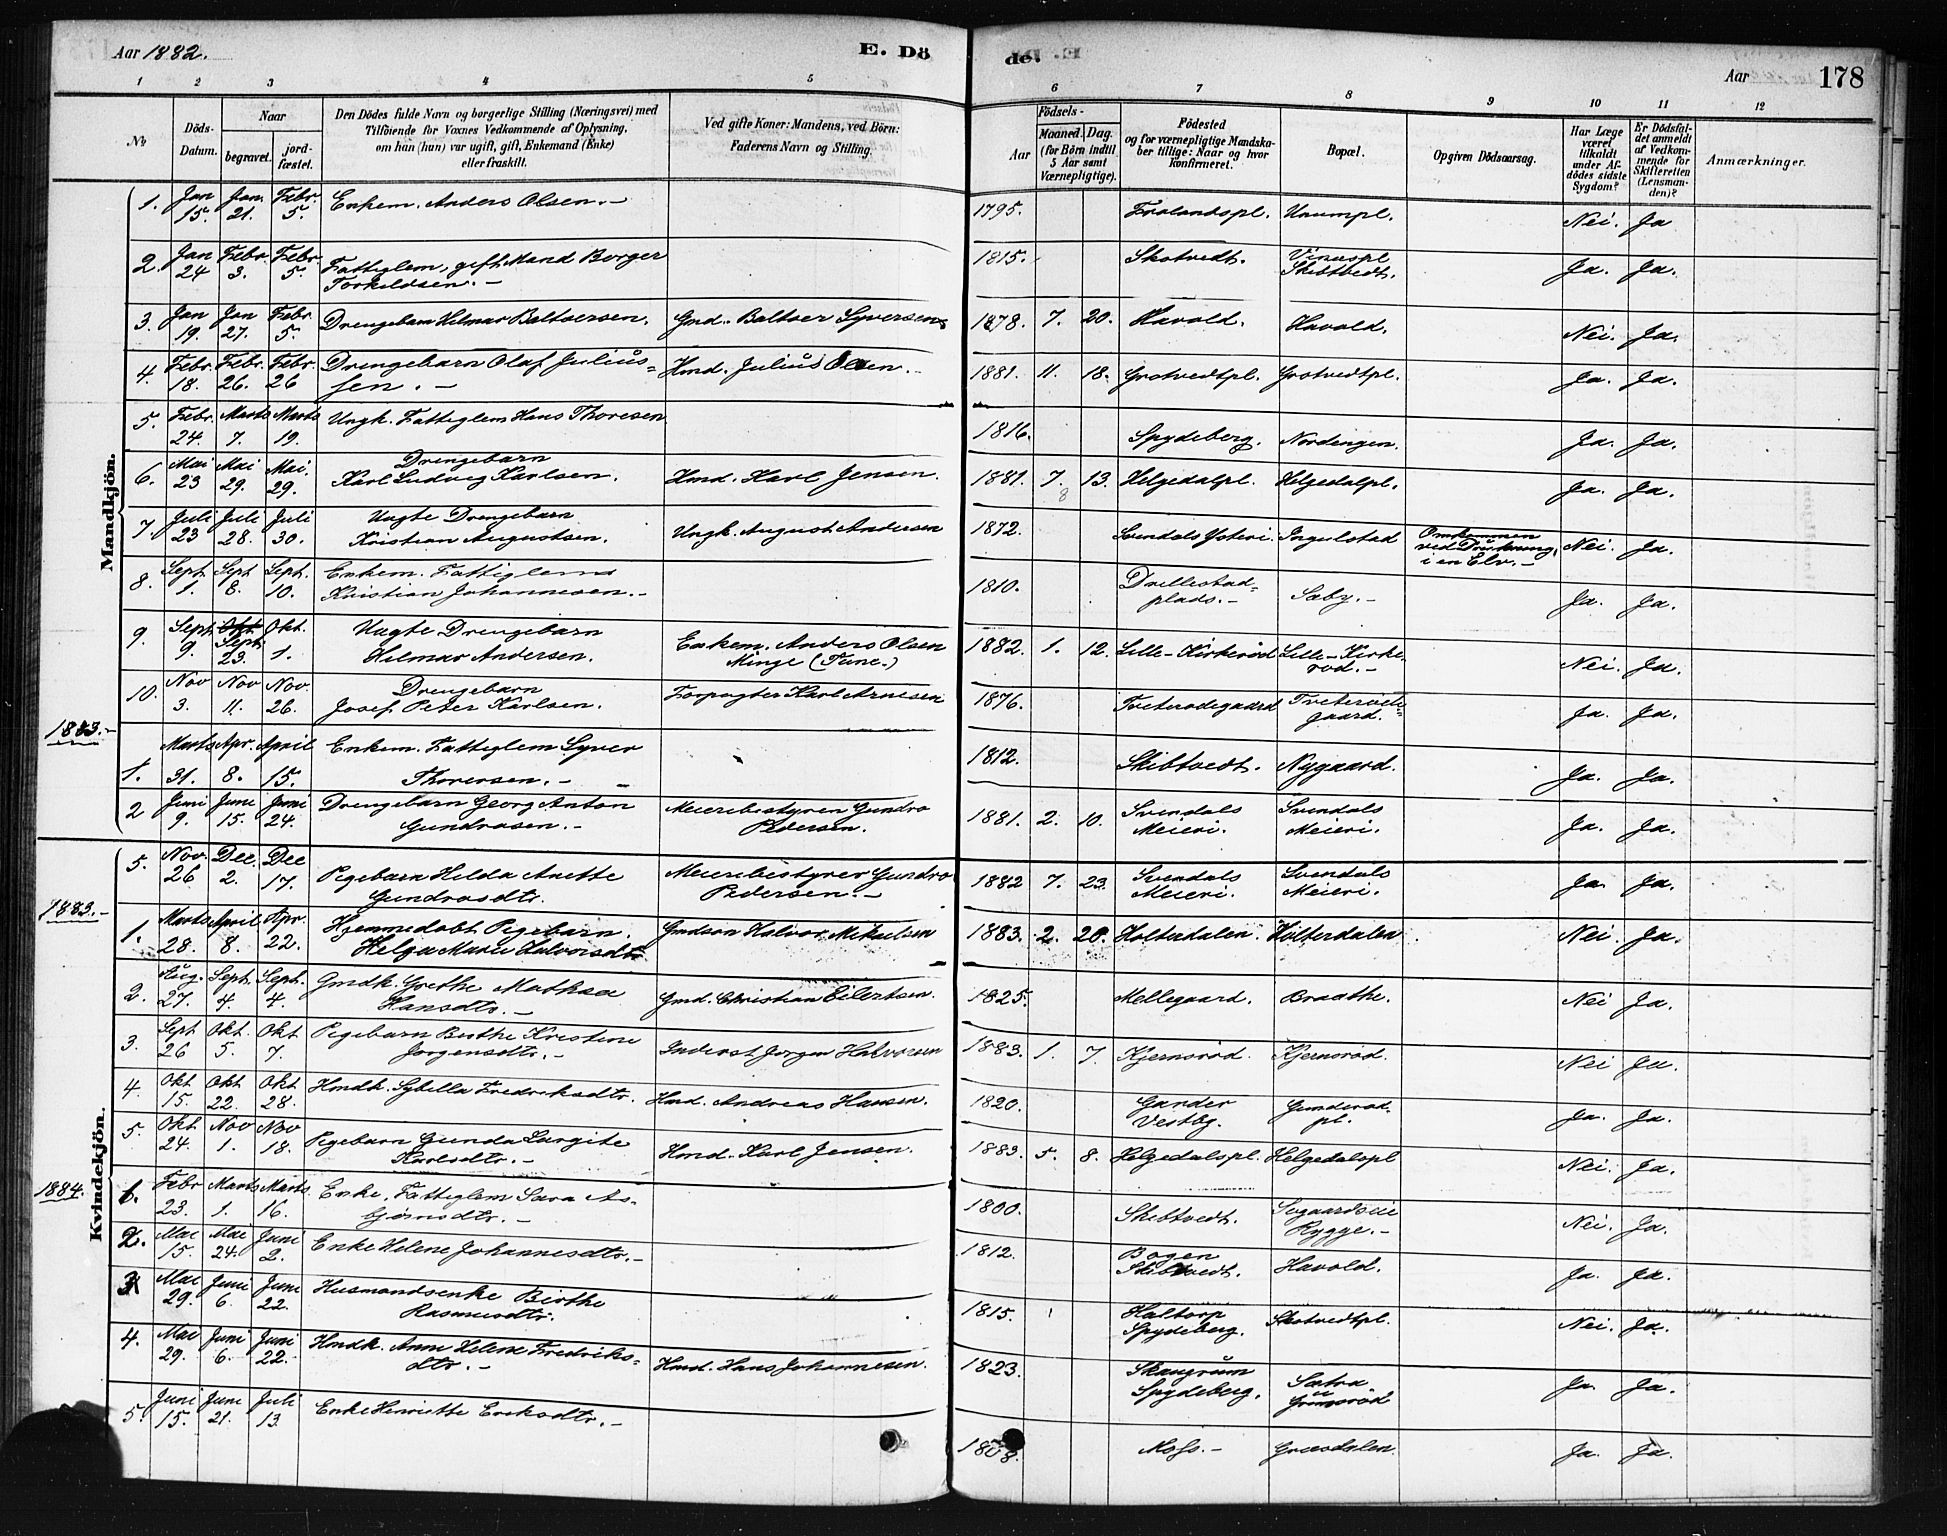 Aar 1882.
E. Dö
de.
Aar
178
1 2 3 4 5 6 7 8 9 10 11 12
No
Döds-Datum.
Naar
begravet.
jord-fæstet.
Den Dödes fulde Navn og borgerlige Stilling (Næringsvei) med
Tilföiende for Voxnes Vedkommende af Oplysning,
om han (hun) var ugift, gift, Enkemand (Enke)
eller fraskilt.
Ved gifte Koner: Mandens, ved Börn:
Faderens Navn og Stilling.
Födsels-
Aar
Maaned. Dag.
(for Börn indtil
5 Aar samt
Værnepligtige).
Födested
og for værnepligtige Mandska-
ber tillige: Naar og hvor
konfirmeret.
Bopæl.
Opgiven Dödsaarsag.
Har Læge
været
tilkaldt
under Af-
dödes sidste
Sygdom?
Er Dödsfal-
det anmeldt
af Vedkom-
mende for
Skifteretten
(Lensman-
den)?
Anmærkninger.
Mandkjön.
1. Jan 15. Jan. 21. Febr. 5. Enkem. Anders Olsen.- 1795. Frolandspl. Unumpl. Nei. Ja
2. Jan 24 Febr. 3. Febr. 5. Fattiglem, gift Mand Borger
Torkeldsen.- 1815. Skotvedt. Skibtvedt. Ja. Ja.
3. Jan 19. Jan 27. Febr. 5. Drengebarn Hilmar Baltsersen. Gmd. Baltser Syversen. 1878. 7. 20. Havold. Havold. Nei. Ja.
4. Febr. 18. Febr. 26. Febr. 26 Drengebarn Olaf Julius=
sen.- Hmd. Julius Olsen. 1881. 11. 18. Grotvedtpl. Grotvedtpl. Ja. Ja.
5. Febr. 24. Marts 7. Marts 19. Ungk. Fattiglem Hans Thoresen 1816. Spydeberg. Nordengen. Ja. Ja.
6. Mai 23 Mai 29. Mai. 29. Drengebarn
Karl Ludvig Karlsen. Hmd. Karl Jensen. 1881. 7. 8 13. Helgedalpl. Helgedalpl. Ja. Ja.
7. Juli 23 Juli 28. Juli 30. Uægte Drengebarn
Kristian Augustsen. Ungk. August Andersen 1872. Svendals Ysteri. Ingulstad Omkommen
ved Drukning
i en Elv.- Nei. Ja.
8. Sept 1. Sept 6. Sept. 10. Enkem. Fattiglem
Kristian Johannesen.- 1810. Drillestad=
plads.- Sæby.- Ja. Ja.
9. Sept. 9. Okt. Sept 23. Okt. 1. Uægte Drengebarn
Hilmar Andersen. Enkem. Anders Olsen
Minge (Tune.) 1882. 1. 12. Lille-Kirkerød Lille-Kirke-
rød.- Nei. Ja.
10. Nov 3. Nov 11. Nov. 26. Drengebarn
Josef Peter Karlsen. Forpagter Karl Arnesen 1876. Tveterødegaard Tveterøde=
gaard. Ja. Ja.
1883.-
1. Marts 31. Apr. 8. April 15. Enkem. Fattiglem Syver
Thoresen.- 1812. Skibtvedt. Nygaard. Ja. Ja.
2 Juni 9. Juni 15. Juni 24. Drengebarn Georg Anton
Gundrosen.- Meieribestyrer Gundro
Pedersen. 1881. 2. 10. Svendals
Meieri. Svendals
Meieri. Ja. Ja.
Kvindekjön.
5. Nov. 26 Dec. 2. Dec 17. Pigebarn Hilda Anette
Gundrosdtr. Meieribestyrer Gundro
Pedersen.- 1882 7. 23. Svendals
Meieri. Svendals
Meieri. Ja. Ja.
1883.-
1. Marts 28. April 8. Apr. 22. Hjemmedøbt Pigebarn.
Helga Marie Halvorsdtr. Gmdsøn Halvor Mikaelsen 1883. 2. 20. Holterdalen. Holterdalen Nei. Ja.
2. Aug. 27. Sept. 4. Sept. 4. Gmdk. Grethe Mathea
Hansdtr.- Gmd. Christian Eilertsen. 1825. Mellegaard. Braathe. Nei Ja.
3. Sept 26 Okt. 5. Okt 7. Pigebarn Berthe Kristine
Jørgensdtr.- Inderst Jørgen Halvorsen 1883. 1. 7. Kjernsrød. Kjernsrød. Nei Ja.
4. Okt 15. Okt 22. Okt 28. Hmdk. Sybilla Fredriksdtr. Hmd. Andreas Hansen. 1820. Gander
Vestby. Gunderød.
pl. Ja. Ja.
5. Okt 24. Nov 1. Nov 18. Pigebarn Gunda Largite
Karlsdtr.- Hmd. Karl Jensen. 1883. 5. 8. Helgedalspl. Helgedalspl Nei. Ja.
1884.
1. Febr 23. Marts 1. Marts 16. Enke, Fattiglem Sara As-
bjørnsdtr.- 1800. Skibtvedt. Rygge.- Nei. Ja.
2. Mai 15. Mai 24. Juni 2. Enke Helene Johannesdtr.- 1812. Bogen
Skibtvedt. Havold. Ja. Ja.
3 Mai 29. Juni 6. Juni 22. Husmandsenke Birthe
Rasmusdtr. 1815. Haltorp
Spydeberg. Skotvedtpl. Nei. Ja.
4. Mai 29. Juni 6. Juni 22. Hmdk. Ann Helene Fredriks=
dtr.- Hmd. Hans Johannesen. 1823. Skaugrum
Spydeberg. Sætra
Ja. Ja.
5. Juni 15. Juni 21. Juli 13 Enke Henriette Eriksdtr.- 1808. Moss.- Græsdalen. Ja. Ja.